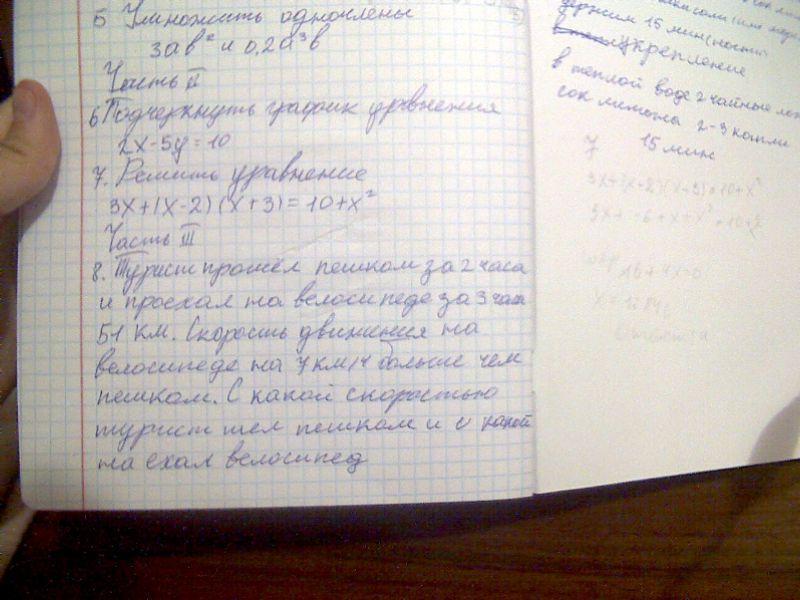 5 Умножить одночлены
3ab² и 0,2a³b
Часть II
6 Подчеркнуть график уравнения
2x-5y=10
7. Решить уравнение
3x+(x-2)(x+3)=10+x²
Часть III
8. Турист прошёл пешком за 2 часа
и проехал на велосипеде за 3 часа
51 км. Скорость движения на
велосипеде на 7 км/ч больше чем
пешком. С какой скоростью
турист шел пешком и с какой
на ехал велосипед
держим 15 мин
укрепление
в теплой воде 2 чайные
сок лимона 2-3 капли
7 15 мин
3x+(x-2)(x+3)=10+x²